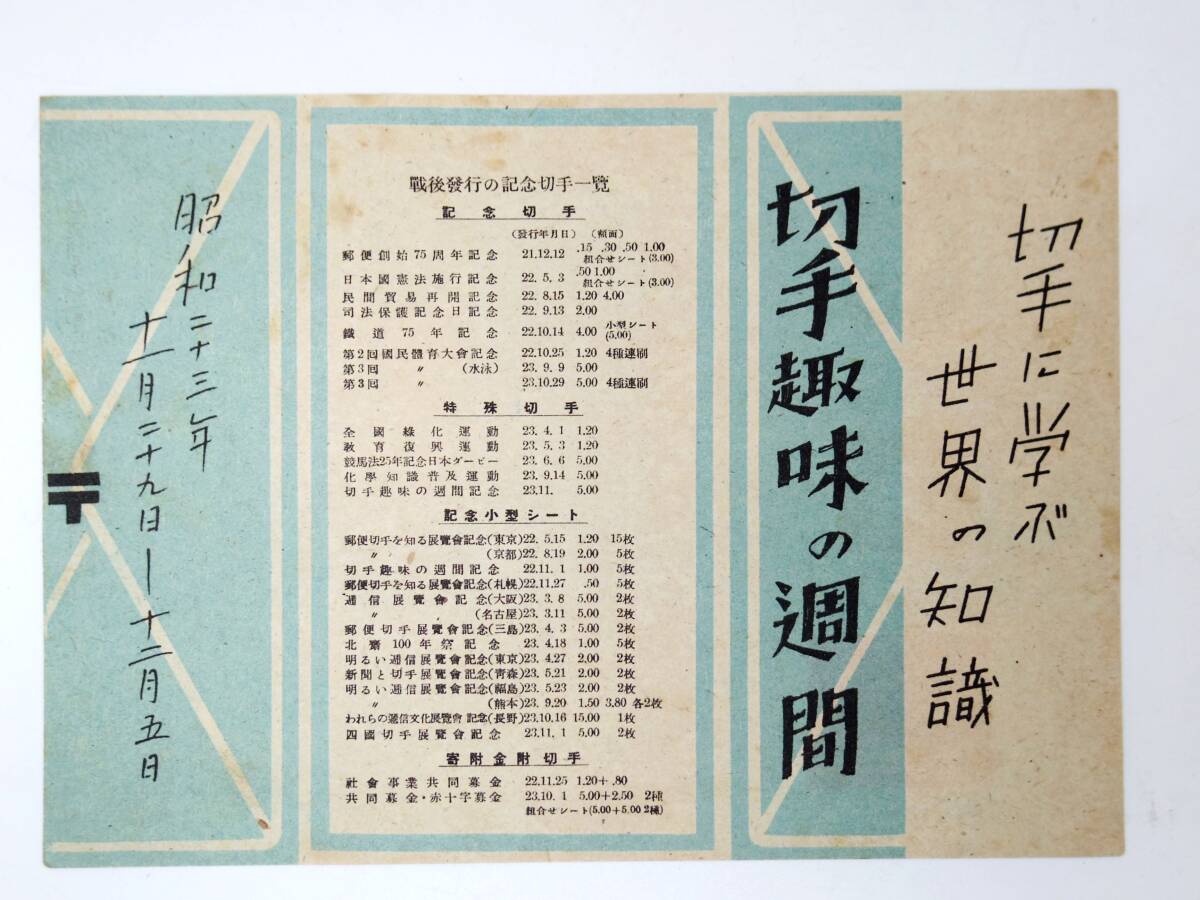 切手に学ぶ
世界の知識
切手趣味の週間
戰後發行の記念切手一覽
記念切手
(發行年月日) (額面)
郵便創始75周年記念 21.12.12 .15 .30 .50 1.00
組合せシート(3.00)
日本國憲法施行記念 22.5.3 .50 1.00
組合せシート(3.00)
民間貿易再開記念 22.8.15 1.20 4.00
司法保護記念日記念 22.9.13 2.00
鐵道75年記念 22.10.14 4.00 小型シート(5.00)
第2回國民體育大會記念 22.10.25 1.20 4種連刷
第3回 〃 (水泳) 23.9.9 5.00
第3回 〃 23.10.29 5.00 4種連刷
特殊切手
全國綠化運動 23.4.1 1.20
教育復興運動 23.5.3 1.20
競馬法25年記念日本ダービー 23.6.6 5.00
化學知識普及運動 23.9.14 5.00
切手趣味の週間記念 23.11. 5.00
記念小型シート
郵便切手を知る展覽會記念(東京) 22.5.15 1.20 15枚
〃 (京都) 22.8.19 2.00 5枚
切手趣味の週間記念 22.11.1 1.00 5枚
郵便切手を知る展覽會記念(札幌) 22.11.27 .50 5枚
逓信展覽會記念(大阪) 23.3.8 5.00 2枚
〃 (名古屋) 23.3.11 5.00 2枚
郵便切手展覽會記念(三島) 23.4.3 5.00 2枚
北齋100年祭記念 23.4.18 1.00 5枚
明るい逓信展覽會記念(東京) 23.4.27 2.00 2枚
新聞と切手展覽會記念(靑森) 23.5.21 2.00 2枚
明るい逓信展覽會記念(福島) 23.5.23 2.00 2枚
〃 (熊本) 23.9.20 1.50 3.80 各2枚
われらの逓信文化展覽會記念(長野) 23.10.16 15.00 1枚
四國切手展覽會記念 23.11.1 5.00 2枚
寄附金附切手
社會事業共同募金 22.11.25 1.20+.80
共同募金・赤十字募金 23.10.1 5.00+2.50 2種
組合せシート(5.00+5.00 2種)
昭和二十三年
十一月二十九日―十二月五日
〒